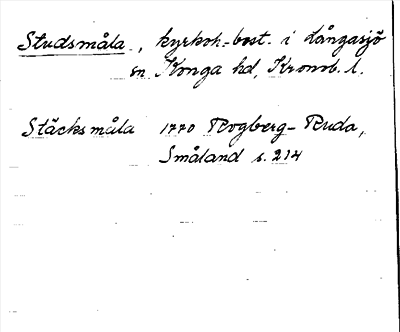 Studsmåla, kyrkoh.-bost. i Långasjö
sn Konga hd, Kronob. l.
Stäcksmåla 1770 Rogberg-Ruda,
Småland s. 214